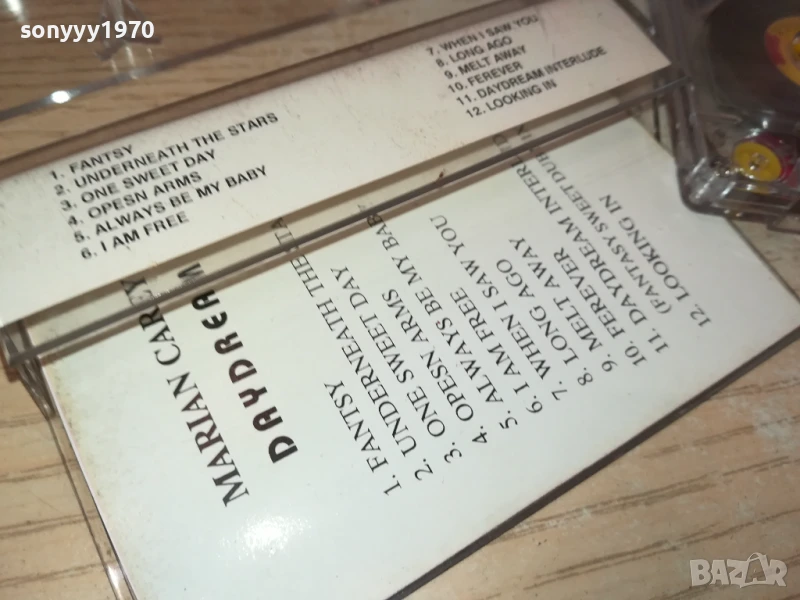 sonyyy1970
1. FANTSY
2. UNDERNEATH THE STARS
3. ONE SWEET DAY
4. OPESN ARMS
5. ALWAYS BE MY BABY
6. I AM FREE
7. WHEN I SAW YOU
8. LONG AGO
9. MELT AWAY
10. FEREVER
11. DAYDREAM INTERLUDE
12. LOOKING IN
MARIAN CAREY
DAYDREAM
1. FANTSY
2. UNDERNEATH THE STA
3. ONE SWEET DAY
4. OPESN ARMS
5. ALWAYS BE MY BABY
6. I AM FREE
7. WHEN I SAW YOU
8. LONG AGO
9. MELT AWAY
10. FEREVER
11. DAYDREAM INTERL
(FANTASY SWEET DUB
12. LOOKING IN
BAZAR